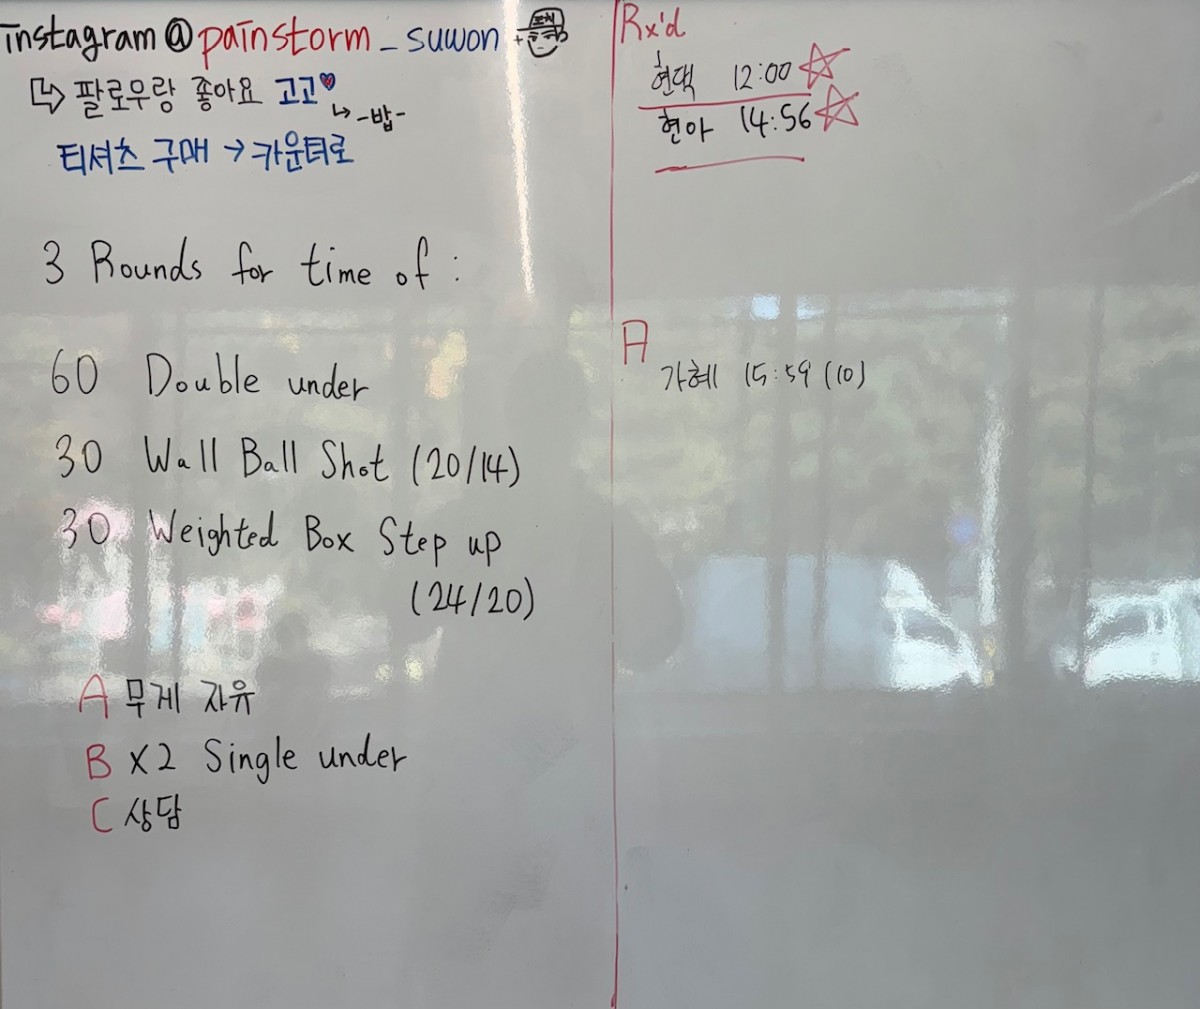 instagram@painstorm_suwon +코치
팔로우랑 좋아요 고고
-밥-
티셔츠 구매 → 카운터로
3 Rounds for time of :
60 Double under
30 Wall Ball Shot (20/14)
30 Weighted Box Step up
(24/20)
A 무게 자유
B X2 Single under
C 상담
Rx'd
현택 12:00
현아 14:56
A
가혜 15:59 (10)